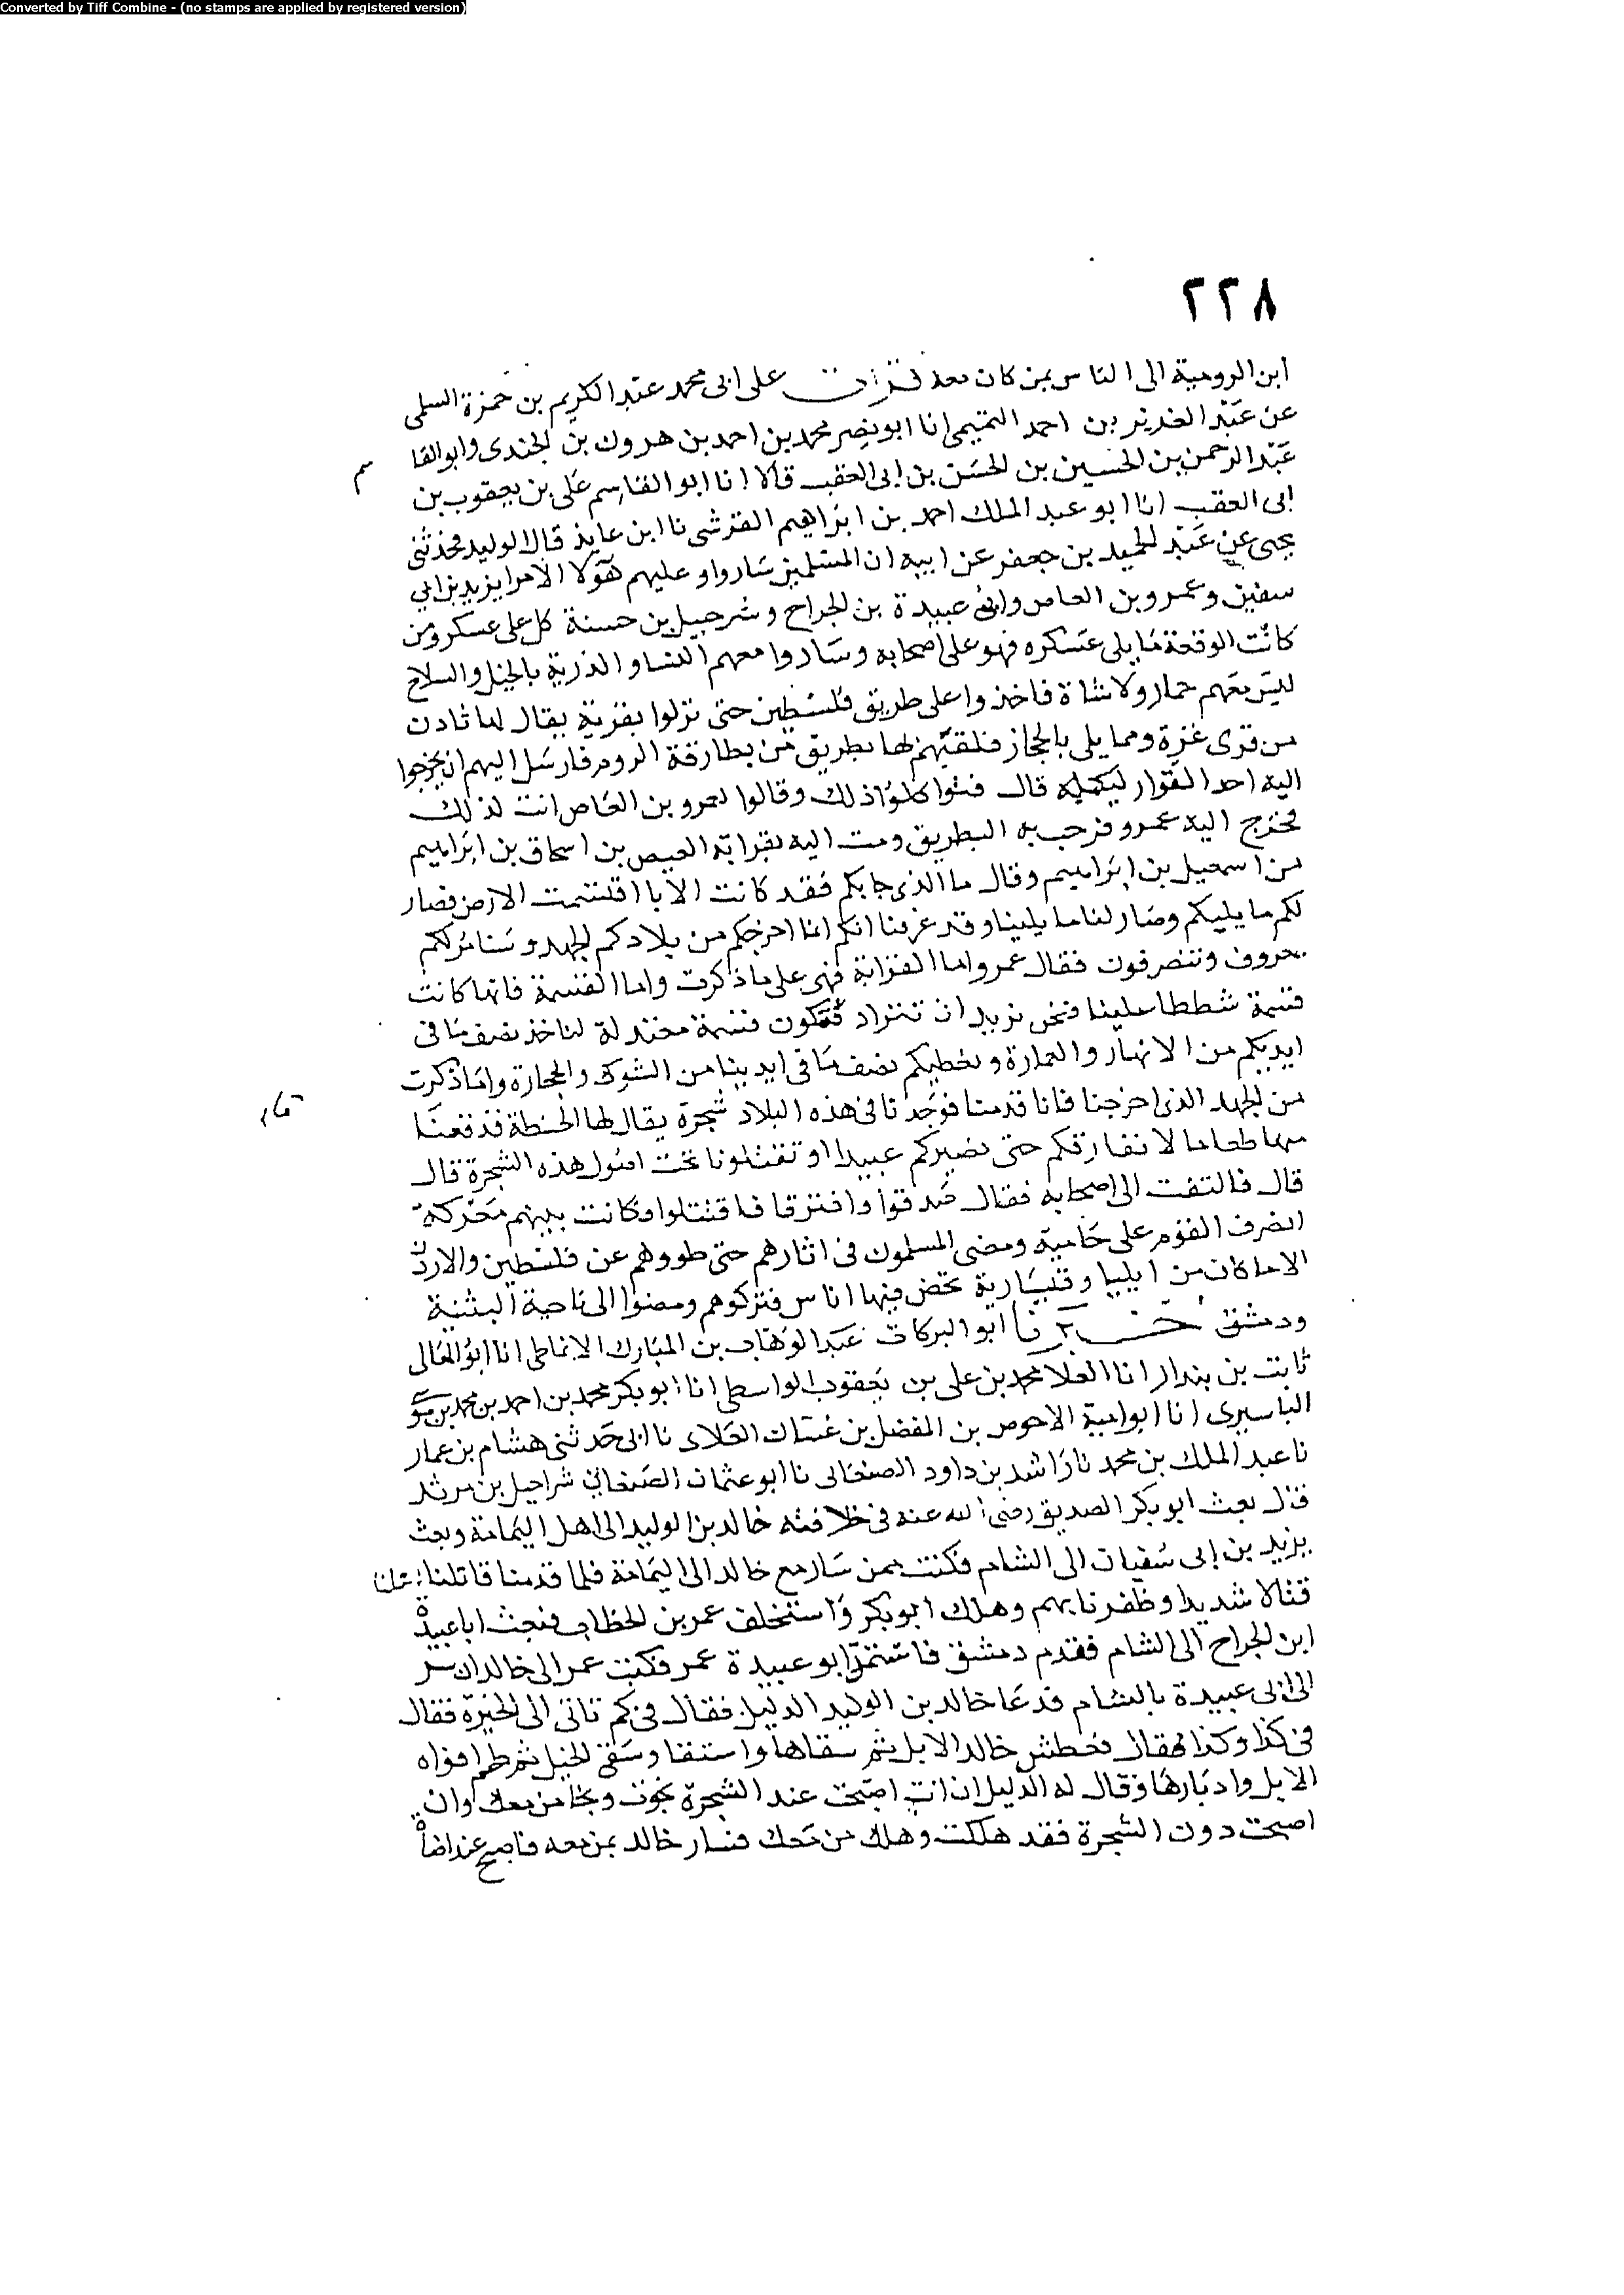 Converted by Tiff Combine - (no stamps are applied by registered version)
٢٢٨
ابن الرومية الى الناس بمن كان معه قرات على ابى محمد عبد الكريم بن حمزة السلمى
عن عبد العزيز بن احمد التميمى انا ابو نصر محمد بن احمد بن هرون بن الجندى وابو القا سم
عبد الرحمن بن الحسين بن الحسن بن ابى العقب قالا انا ابو القاسم على بن يعقوب بن
ابى العقب انا ابو عبد الملك احمد بن ابراهيم القرشى نا ابن عايذ قال الوليد فحدثنى
يحيى عن عبد الحميد بن جعفر عن ابيه ان المسلمين ساروا وعليهم هولا الامرا يزيد بن ابي
سفين وعمرو بن العاص وابى عبيدة بن الجراح وشرحبيل بن حسنة كل على عسكر ومن
كانت الوقعة مما يلى عسكره فهو على اصحابه وساروا معهم النسا والذرية بالخيل والسلاح
ليس معهم حمار ولا شاة فاخذوا على طريق فلسطين حتى نزلوا بقرية يقال لها ثادن
من قرى غزة ومما يلى بالحجاز فلقيهم لها بطريق من بطارقة الروم فارسل اليهم ان يخرجوا
اليه احد القواد ليكلمه قال فتواكلوا ذلك وقالوا لعمرو بن العاص انت لذلك
فخرج اليه عمرو فرحب به البطريق ومت اليه بقرابة العيص بن اسحاق بن ابراهيم
من اسمعيل بن ابراهيم وقال ما الذى جا بكم فقد كانت الابا اقتسمت الارض فصار
لكم ما يليكم وصار لنا ما يلينا وقد عرفنا انكم انما اخرجكم من بلادكم الجهد وسنامر لكم
بمعروف وتنصرفون فقال عمرو اما القرابة فهى على ما ذكرت واما القسمة فانها كانت
قسمة شططا علينا فنحن نريد ان نتراد فتكون قسمة معتدلة لناخذ نصف ما فى
ايديكم من الانهار والعمارة ونعطيكم نصف ما فى ايدينا من الشوك والحجارة واما ذكرت
من الجهد الذى اخرجنا فانا قدمنا فوجدنا فى هذه البلاد شجرة يقال لها الحنطة فذقنا
منها طعاما لا نفارقكم حتى نصيركم عبيدا او تقتلونا تحت اصول هذه الشجرة قال
قال فالتفت الى اصحابه فقال صدقوا وافترقا فاقتتلوا فكانت بينهم معركة
انصرف القوم على حامية ومضى المسلمون فى اثارهم حتى طووهم عن فلسطين والاردن
الا ما كان من ايليا وقيسارية تحصن فيها اناس فتركوهم ومضوا الى ناحية البثنية
ودمشق اخبرنا ابو البركات عبد الوهاب بن المبارك الانماطى انا ابو المعالى
ثابت بن بندار انا العلا محمد بن على بن يعقوب الواسطى انا ابو بكر محمد بن احمد بن محمد بن موسى
البابسيرى انا ابو امية الاحوص بن المفضل بن غسان الغلابى نا ابى حدثنى هشام بن عمار
نا عبد الملك بن محمد نا راشد بن داود الصنعانى نا ابو عثمان الصنعاني شراحيل بن مرثد
قال بعث ابو بكر الصديق رضى الله عنه فى خلافته خالد بن الوليد الى اهل اليمامة وبعث
يزيد بن ابى سفيان الى الشام فكنت ممن سار مع خالد الى اليمامة فلما قدمنا قاتلنا
قتالا شديدا وظفرنا بهم وهلك ابو بكر واستخلف عمر بن الخطاب فبعث ابا عبيدة
ابن الجراح الى الشام فقدم دمشق فاستمد ابو عبيدة عمر فكتب عمر الى خالد ان سر
الى ابى عبيدة بالشام فدعا خالد بن الوليد الدليل فقال فى كم تاتى الى الحيرة فقال
فى كذا وكذا فقال فعطش خالد الابل ثم سقاها واستقا وسقى الخيل ثم طم افواه
الابل وادبارها وقال له الدليل ان انت اصبحت عند الشجرة نجوت ونجا من معك وان
اصبحت دون الشجرة فقد هلكت وهلك من معك فسار خالد بمن معه فاصبح عند اضاة